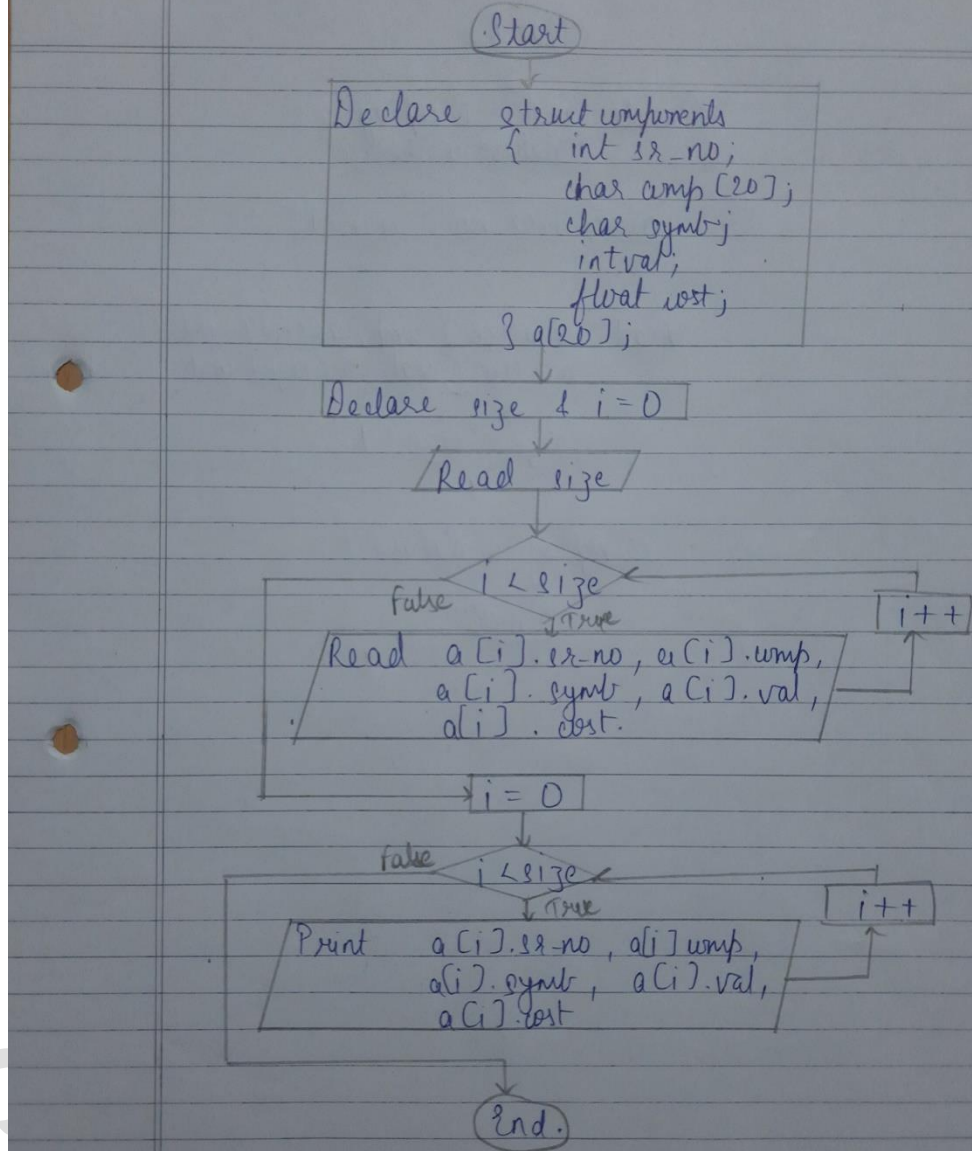 Start
Declare struct components
{ int sr_no;
char comp [20];
char symb;
int val;
float cost;
} a[20];
Declare size & i = 0
Read size
i < size
False
True
i++
Read a[i].sr_no, a[i].comp,
a[i].symb, a[i].val,
a[i].cost.
i = 0
False
i < size
True
i++
Print a[i].sr_no, a[i] comp,
a[i].symb, a[i].val,
a[i].cost
End.